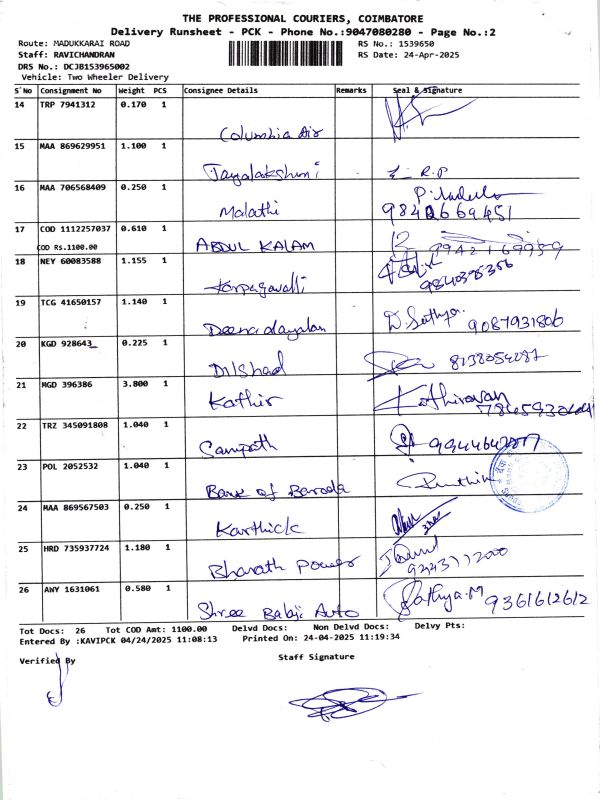 THE PROFESSIONAL COURIERS, COIMBATORE
Delivery Runsheet - PCK - Phone No.:9047080280 - Page No.:2
Route: MADUKKARAI ROAD RS No.: 1539650
Staff: RAVICHANDRAN RS Date: 24-Apr-2025
DRS No.: DCJB153965002
Vehicle: Two Wheeler Delivery
S'No Consignment No Weight PCS Consignee Details Remarks Seal & Signature
14 TRP 7941312 0.170 1
Columbia Air
15 MAA 869629951 1.100 1
Jayalakshmi R.P
16 MAA 706568409 0.250 1
Malathi 9842669451
17 COD 1112257037 0.610 1
COD Rs.1100.00 ABDUL KALAM
18 NEY 60083588 1.155 1
Karpagavalli
19 TCG 41650157 1.140 1
Deenadayalan D. Sathya. 9087931806
20 KGD 928643 0.225 1
Dilshad
21 MGD 396386 3.800 1
Kathir Kathiravan
22 TRZ 345091808 1.040 1
Sampath
23 POL 2052532 1.040 1
Bank of Baroda
24 MAA 869567503 0.250 1
Karthick
25 HRD 735937724 1.180 1
Bharath Power
26 AWY 1631061 0.580 1
Shree Balaji Auto Sathya.M 9361612612
Tot Docs: 26 Tot COD Amt: 1100.00 Delvd Docs: Non Delvd Docs: Delvy Pts:
Entered By :KAVIPCK 04/24/2025 11:08:13 Printed On: 24-04-2025 11:19:34
Verified By Staff Signature